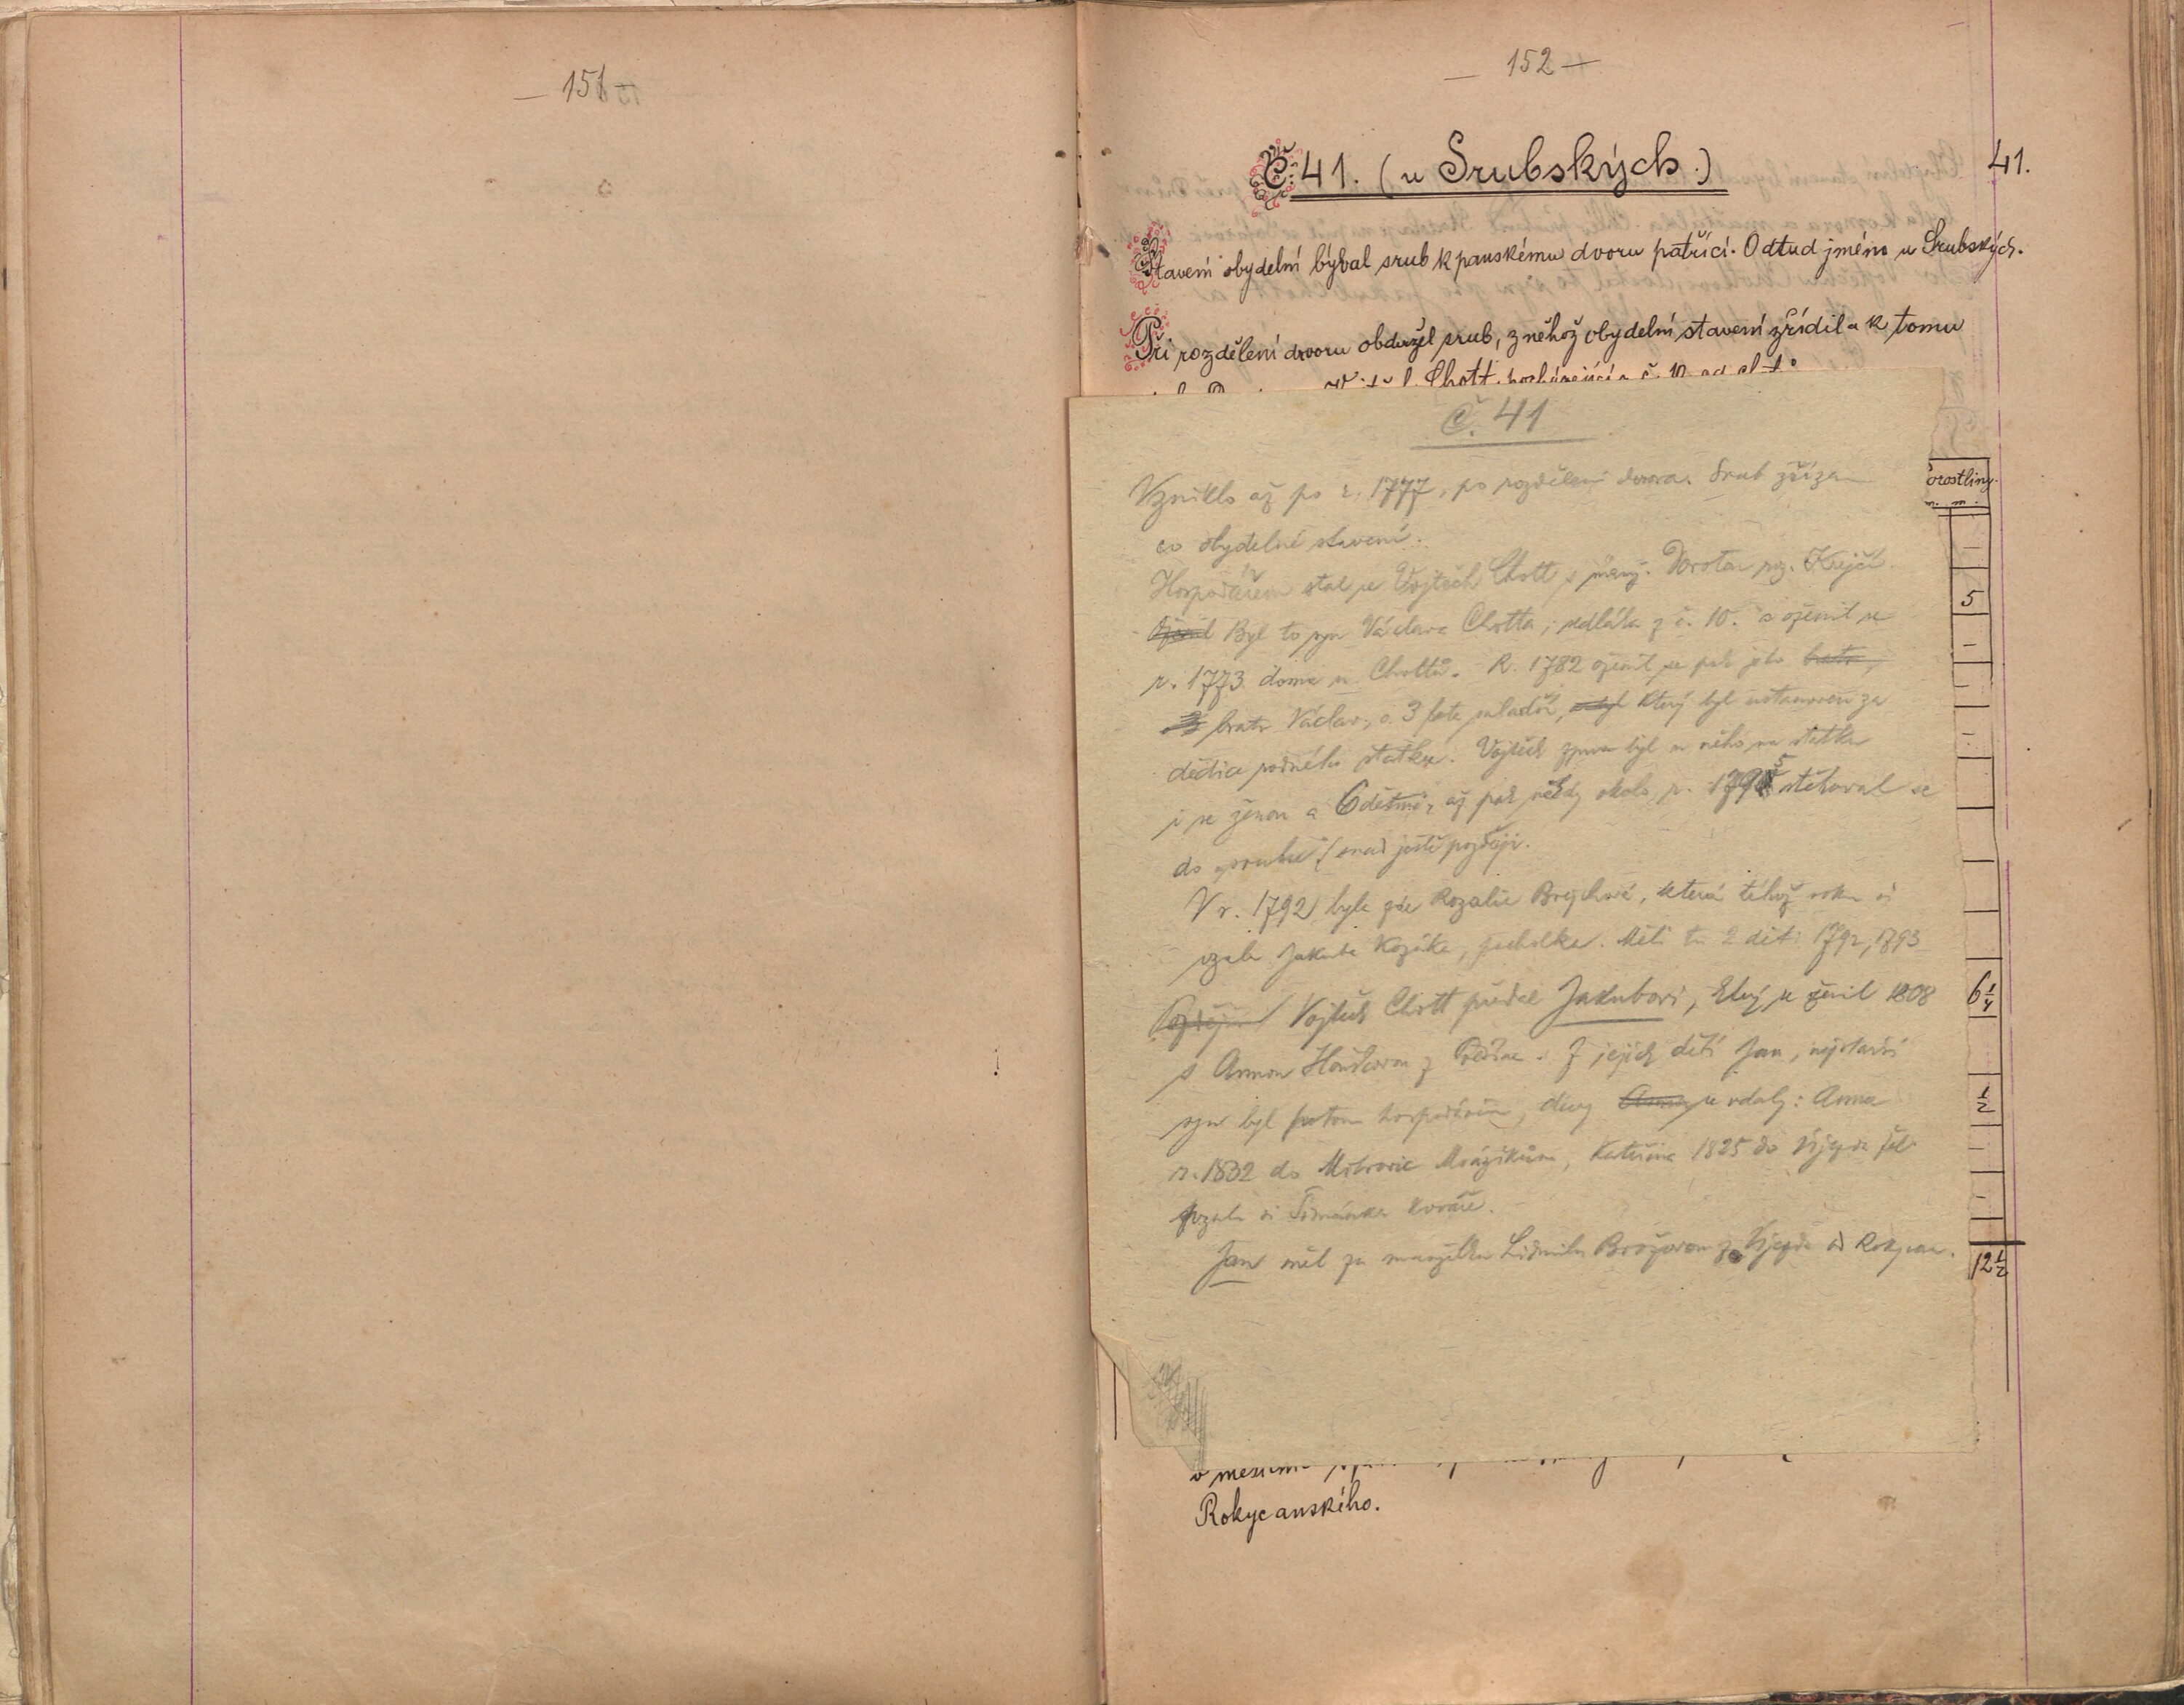 — 151 —
— 152 —
Č. 41. (u Srubských.)
41.
Stavení obydelní býval srub k panskému dvoru patřící. Odtud jméno u Srubských.
Při rozdělení dvoru obdržel srub, z něhož obydelní stavení zřídil a k tomu
Chott, pocházející z č. 10
č. 41
Vzniklo až po r. 1777, po rozdělení dvora. Srub zřízen
co obydelné stavení.
Hospodářem stal se Vojtěch Chott s manž. Dorotou roz. Krejčí.
Byl to syn Václava Chotta, sedláka z č. 10. a oženil se
r. 1773 doma u Chottů. R. 1782 oženil se pak jeho bratr,
bratr Václav, o 3 léta mladší, který byl ustanoven za
dědice rodného statku. Vojtěch zprvu byl u něho na statku
i se ženou a 6 dětmi, až pak někdy okolo r. 1795 stěhoval se
do „srubu" (snad ještě později.
V r. 1792 byla zde Rozalie Brejchová, která téhož roku si
vzala Jakuba Kozáka, pacholka. Měli tu 2 děti 1792, 1793
Vojtěch Chott předal Jakubovi, který se ženil 1808
s Annou Houškovou z . Z jejich dětí Jan, nejstarší
syn byl potom hospodářem, dcery Anna se vdaly: Anna
r. 1832 do Mitrovic Mrázikům, Kateřina 1825 do Újezda
vzala si kováře.
Jan měl za manželku Lidmilu Brožovou z Újezda od Rokycan.
orostliny.
m.
5
6 1/4
1/2
12 1/2
Rokycanského.